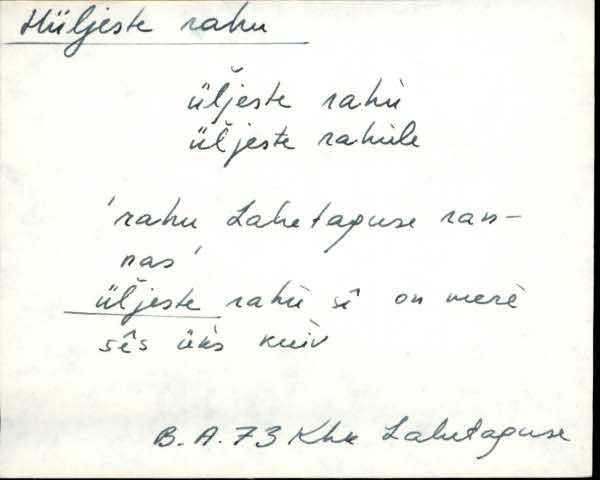 Hüljeste rahu
üľjeste rahù
üľjeste rahùle
'rahu Lahetaguse ran-
nas'
üľjeste rahù sê on merè
sês üks kuiv
B. A. 73 Khk Lahetaguse